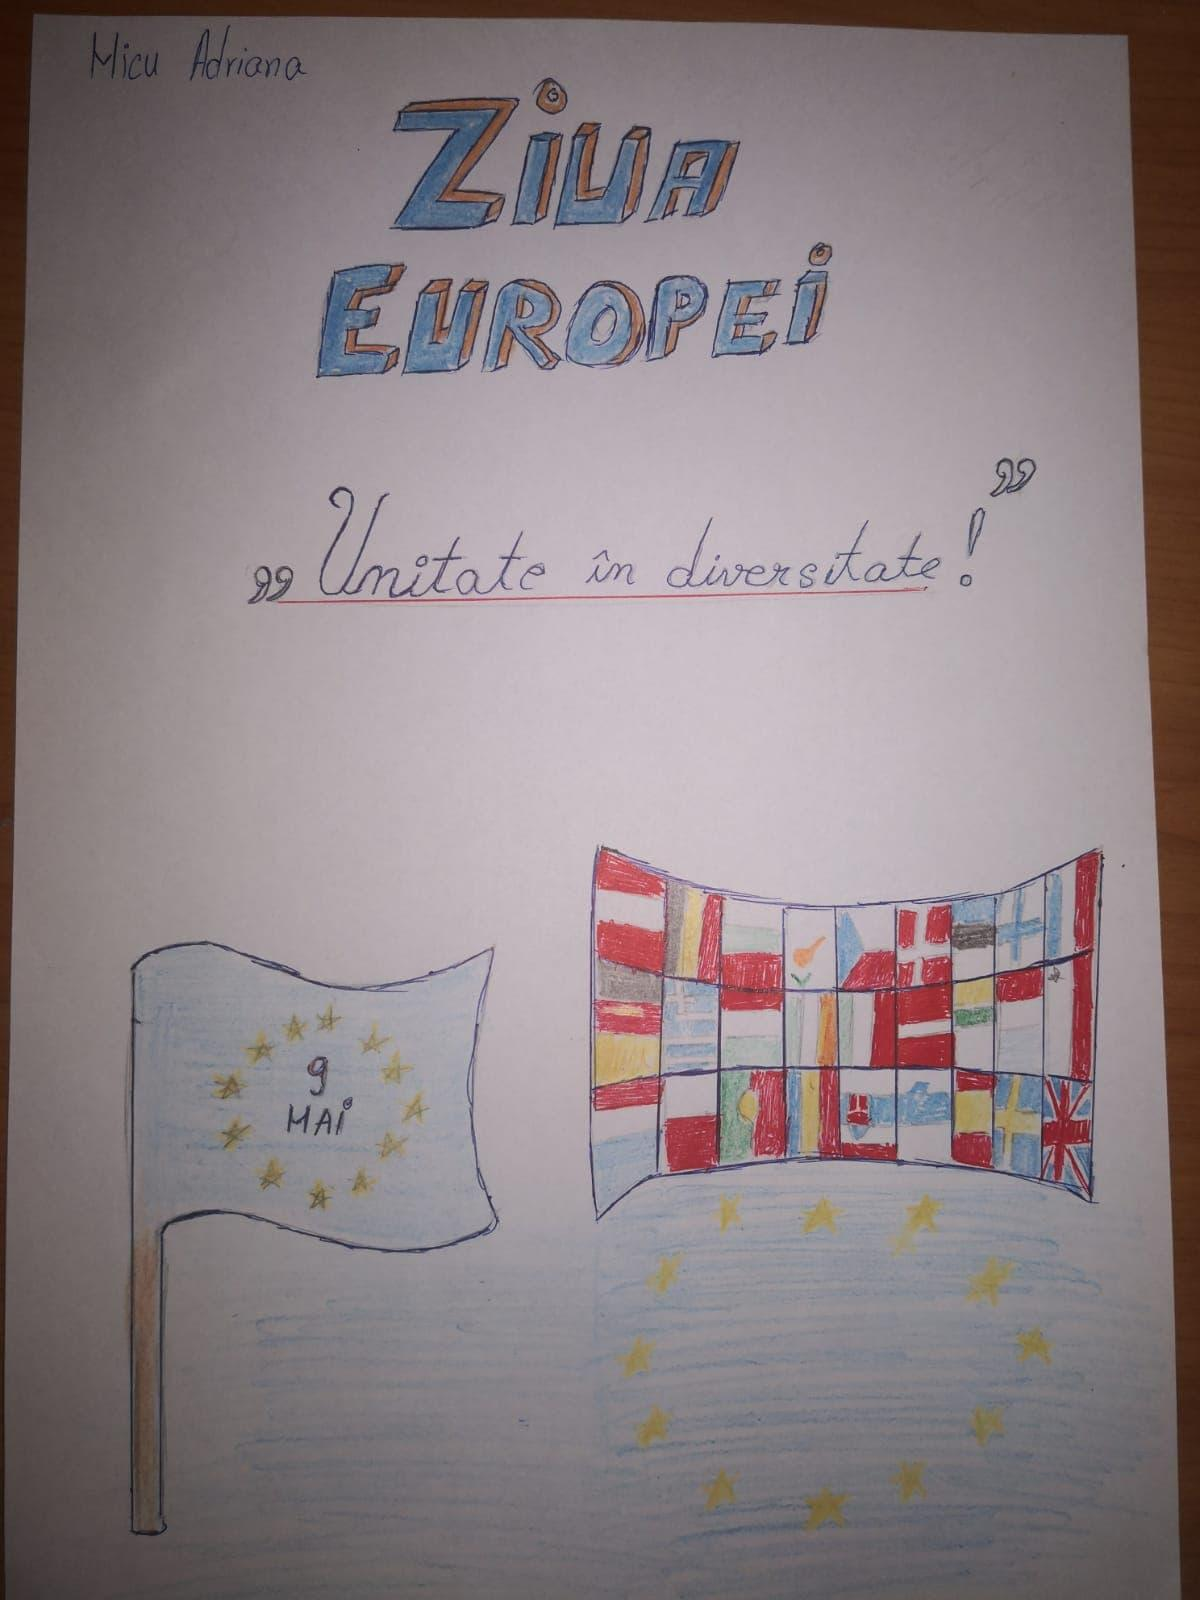 Micu Adriana
Ziua
Europei
„Unitate în diversitate!”
9
Mai